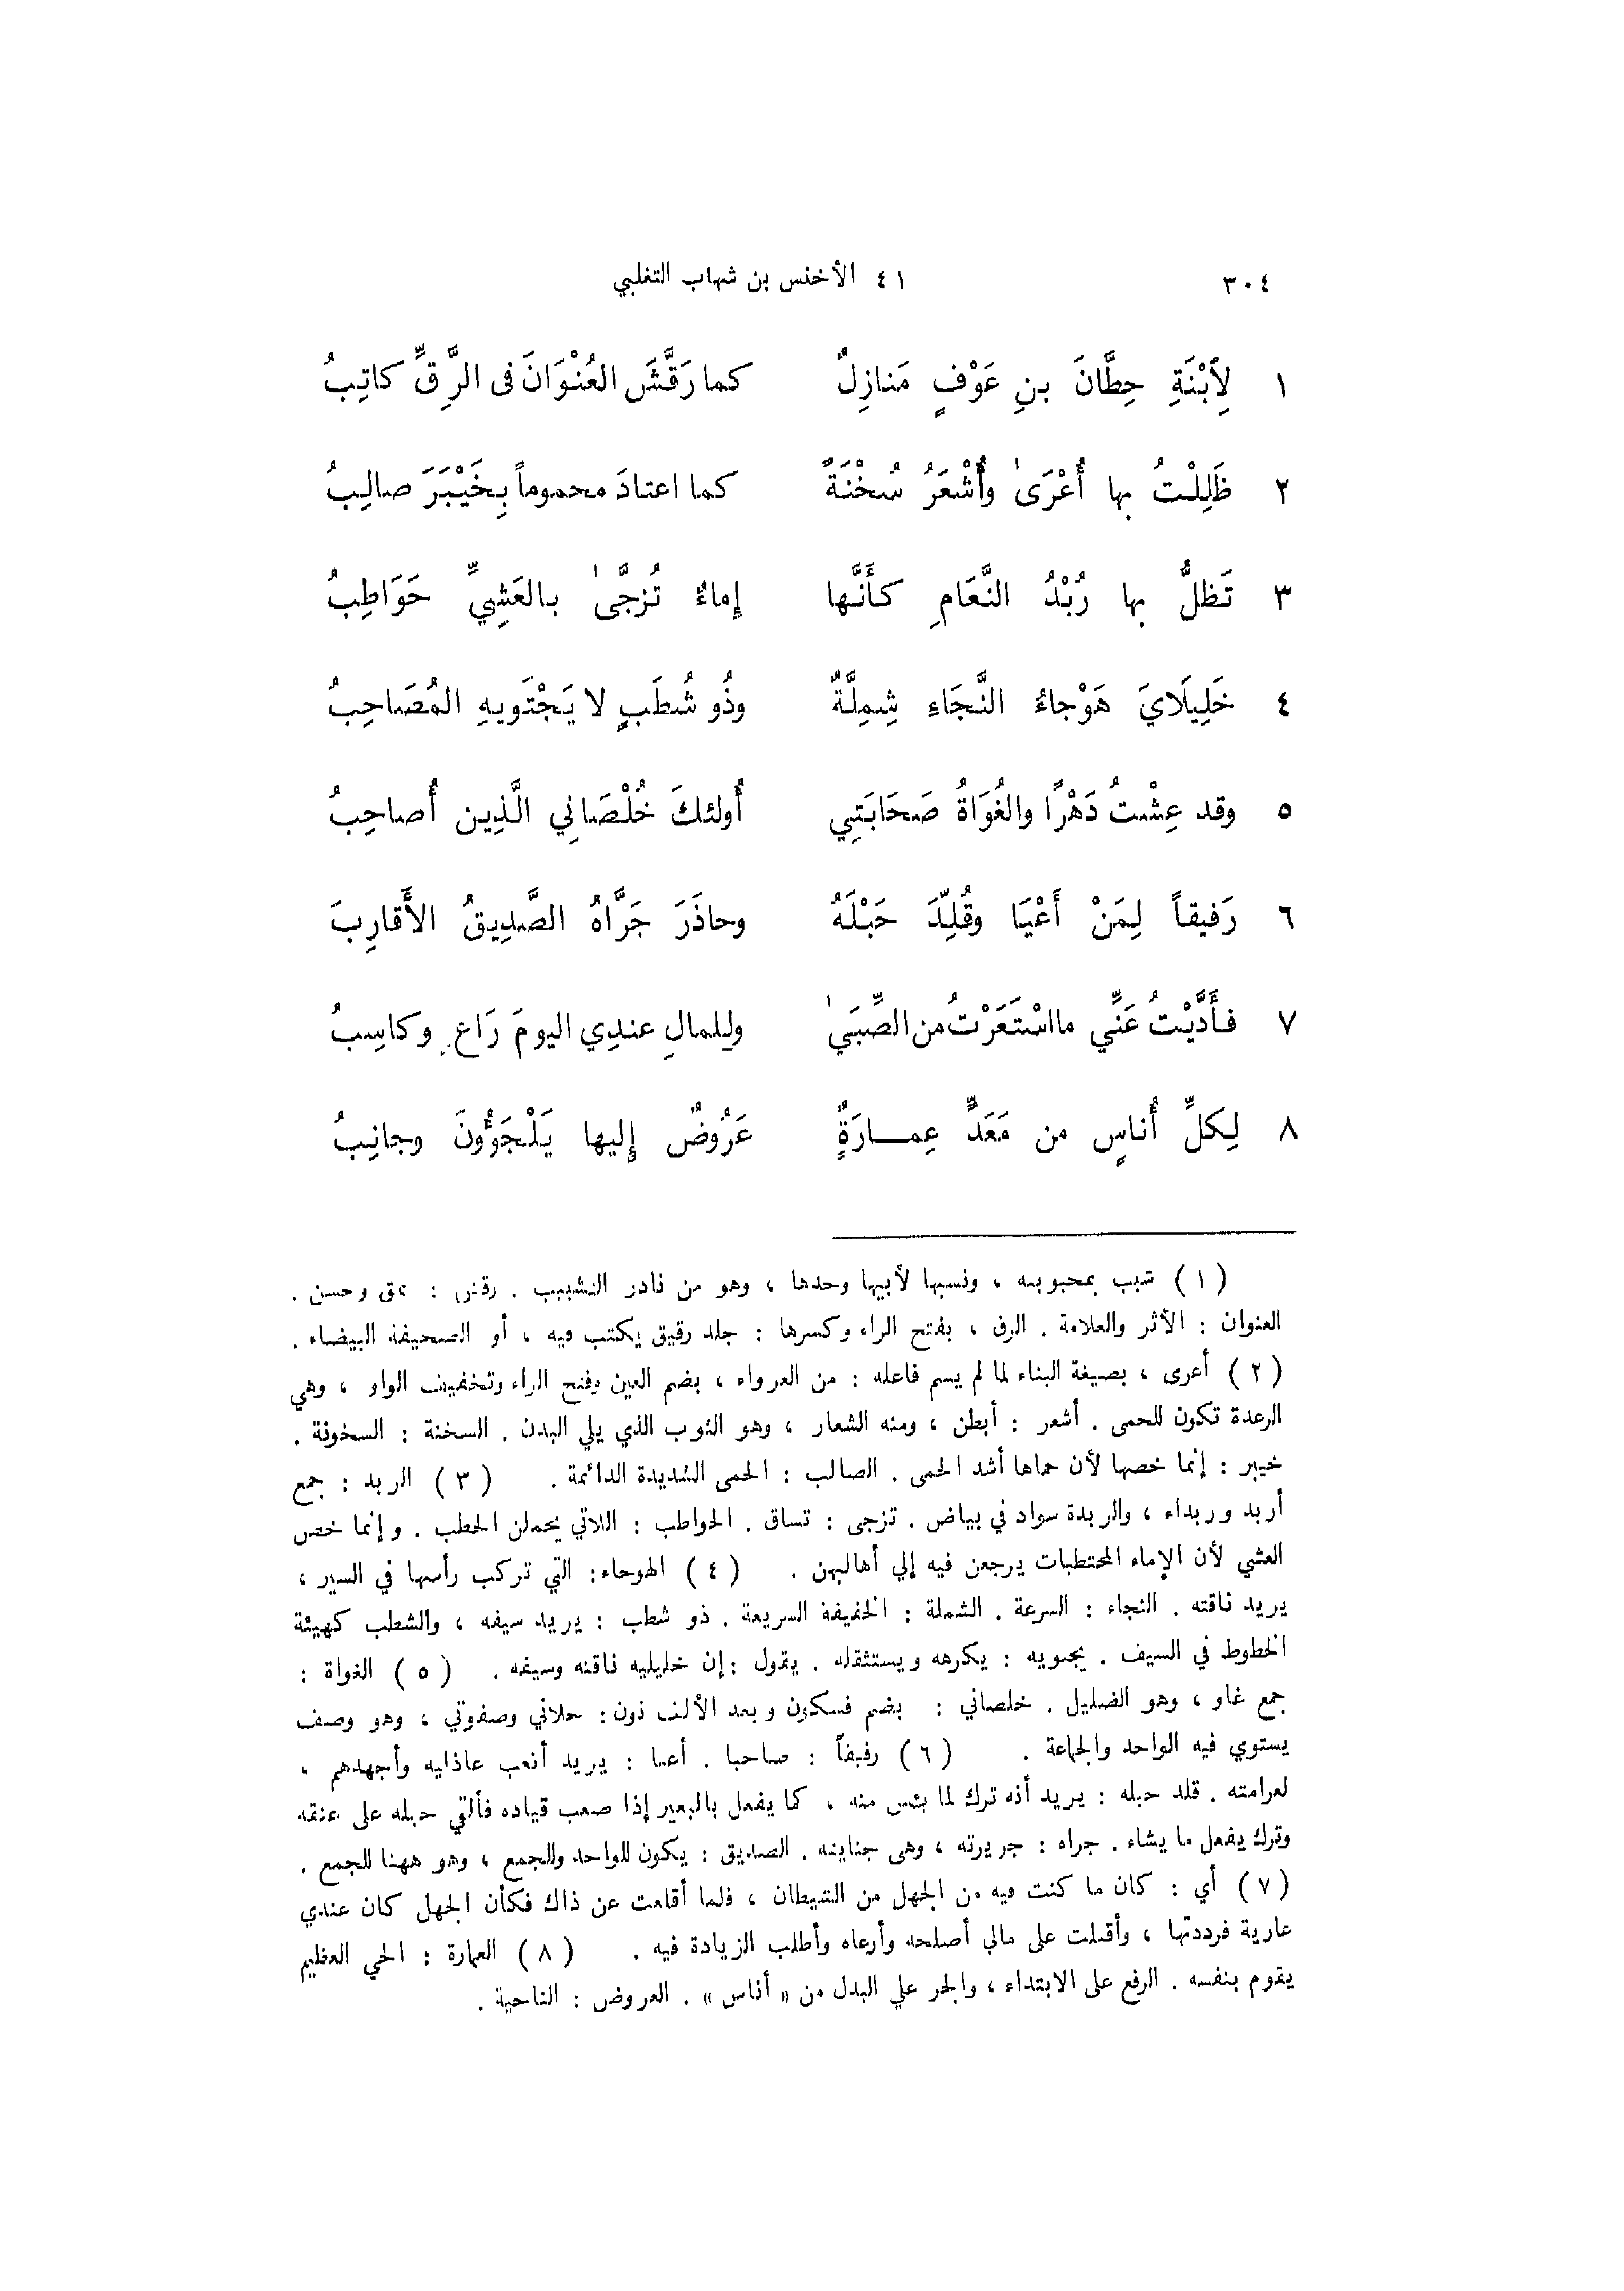 ٣٠٤ ٤١ الأخنس بن شهاب التغلبي
١ لِٱبْنَةِ حِطَّانَ بنِ عَوْفٍ مَنازِلٌ كما رَقَّشَ العُنْوَانَ فى الرَّقِّ كاتِبُ
٢ ظَلِلْتُ بها أُعْرَىٰ وأُشْعَرُ سُخْنَةً كما اعتادَ محموماً بِخَيْبَرَ صالِبُ
٣ تَظلُّ بها رُبْدُ النَّعَامِ كَأَنَّها إِماءٌ تُزجَّىٰ بالعَشِيِّ حَوَاطِبُ
٤ خَلِيلَايَ هَوْجاءُ النَّجَاءِ شِمِلَّةٌ وذُو شُطَبٍ لا يَجْتَويهِ المُصَاحِبُ
٥ وقد عِشْتُ دَهْرًا والغُوَاةُ صَحَابَتِي أُولئكَ خُلْصَانِي الَّذِين أُصاحِبُ
٦ رَفيقاً لِمَنْ أَعْيَا وقُلِّدَ حَبْلَهُ وحاذَرَ جَرَّاهُ الصَّدِيقُ الأَقارِبَ
٧ فأَدَّيْتُ عَنِّي ما اسْتَعَرْتُ من الصِّبَىٰ وللمالِ عندِي اليومَ رَاعٍ وكاسِبُ
٨ لِكلِّ أُناسٍ من مَعَدٍّ عِمـــارَةٌٍ عَرُوضٌ إِليها يَلْجَؤُونَ وجانِبُ
(١) شبب بمحبوبته ، ونسبها لأبيها وحدها ، وهو من نادر التشبيب . رقش : نمق وحسن .
العنوان : الأثر والعلامة . الرق ، بفتح الراء وكسرها : جلد رقيق يكتب فيه ، أو الصحيفة البيضاء .
(٢) أعرى ، بصيغة البناء لما لم يسم فاعله : من العرواء ، بضم العين وفتح الراء وتخفيف الواو ، وهي
الرعدة تكون للحمى . أشعر : أبطن ، ومنه الشعار ، وهو الثوب الذي يلي البدن . السخنة : السخونة .
خيبر : إنما خصها لأن حماها أشد الحمى . الصالب : الحمى الشديدة الدائمة . (٣) الربد : جمع
أربد وربداء ، والربدة سواد في بياض . تزجى : تساق . الحواطب : اللاتي يحملن الحطب . وإنما خص
العشي لأن الإماء المحتطبات يرجعن فيه إلي أهاليهن . (٤) الهوجاء : التي تركب رأسها في السير ،
يريد ناقته . النجاء : السرعة . الشملة : الخفيفة السريعة . ذو شطب : يريد سيفه ، والشطب كهيئة
الخطوط في السيف . يجتويه : يكرهه ويستثقله . يقول : إن خليليه ناقته وسيفه . (٥) الغواة :
جمع غاو ، وهو الضليل . خلصاني : بضم فسكون وبعد الألف نون : خلاني وصفوتي ، وهو وصف
يستوي فيه الواحد والجماعة . (٦) رفيقاً : صاحبا . أعيا : يريد أتعب عاذليه وأجهدهم ،
لعرامته . قلد حبله : يريد أنه ترك لما يئس منه ، كما يفعل بالبعير إذا صعب قياده فألقي حبله على عنقه
وترك يفعل ما يشاء . جراه : جريرته ، وهى جنايته . الصديق : يكون للواحد وللجمع ، وهو ههنا للجمع .
(٧) أي : كان ما كنت فيه من الجهل من الشيطان ، فلما أقلعت عن ذاك فكأن الجهل كان عندي
عارية فرددتها ، وأقبلت على مالي أصلحه وأرعاه وأطلب الزيادة فيه . (٨) العمارة : الحي العظيم
يقوم بنفسه . الرفع على الابتداء ، والجر علي البدل من « أناس » . العروض : الناحية .